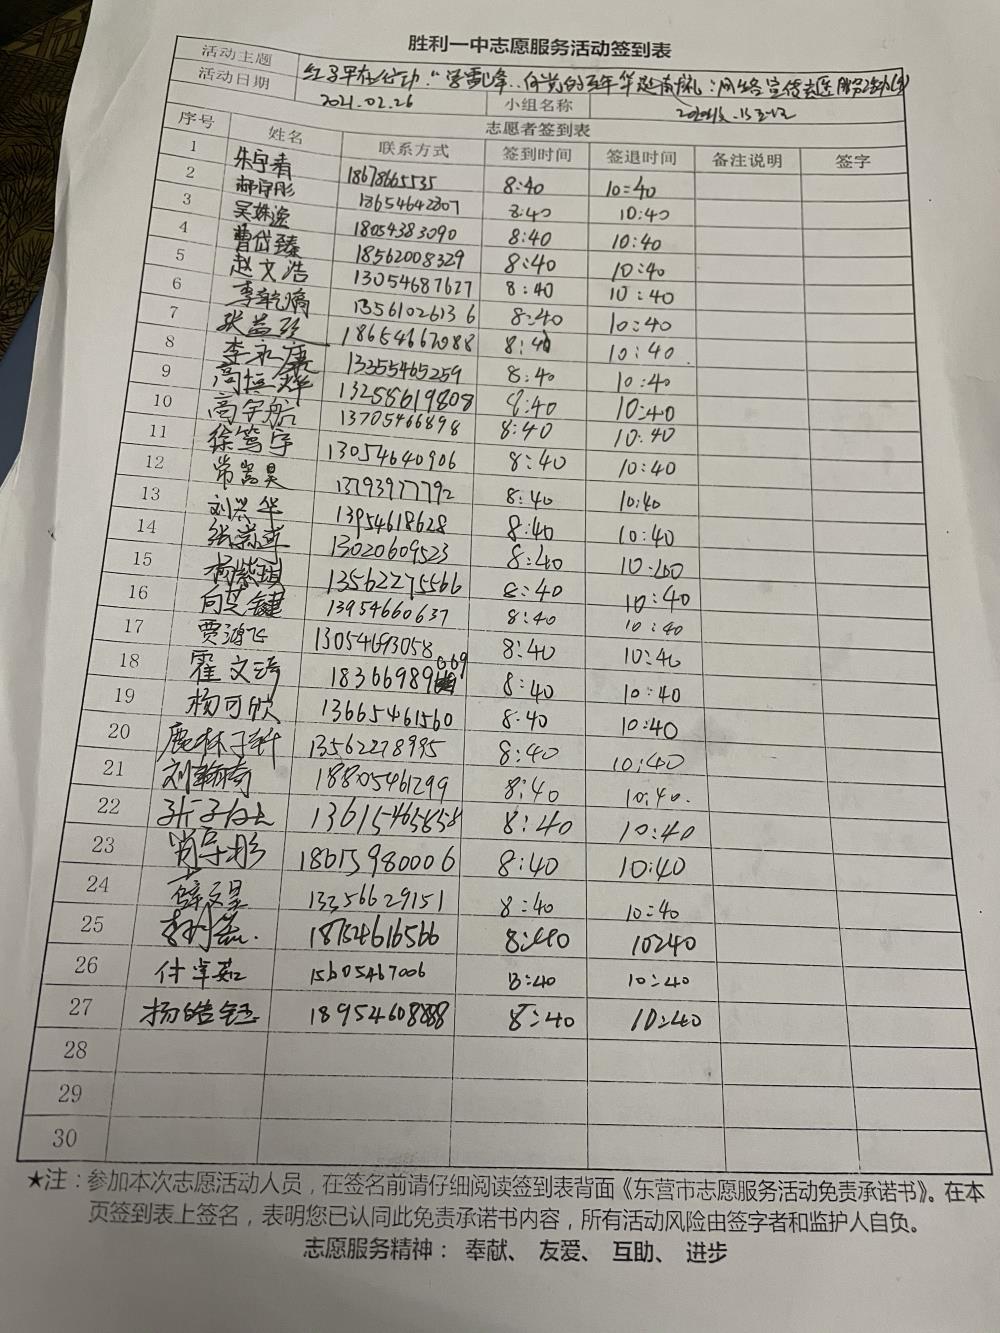 胜利一中志愿服务活动签到表
活动主题 红马甲在行动："学雷锋
活动日期 2021.02.26 小组名称
志愿者签到表
序号 姓名 联系方式 签到时间 签退时间 备注说明 签字
1 朱宇青 18678665535 8:40 10:40
2 郝宇彤 18654642807 8:40 10:40
3 吴姝 18054383090 8:40 10:40
4 曹岱臻 18562008329 8:40 10:40
5 赵文浩 13054687627 8:40 10:40
6 李 13561026136 8:40 10:40
7 张益 18654667088 8:40 10:40
8 李永康 13255465259 8:40 10:40
9 高恒烨 13258619808 8:40 10:40
10 高宇航 13705466898 8:40 10:40
11 徐笃宇 13054640906 8:40 10:40
12 常嵩昊 13793977792 8:40 10:40
13 刘兴华 13954618628 8:40 10:40
14 张 13020609523 8:40 10:40
15 杨紫 13562275566 8:40 10:40
16 向芝键 13954660637 8:40 10:40
17 贾鸿飞 13054693058 8:40 10:40
18 霍文 18366989069 8:40 10:40
19 杨可欣 13665461560 8:40 10:40
20 鹿林子轩 13562278995 8:40 10:40
21 刘瀚奇 18805461299 8:40 10:40.
22 13615465858 8:40 10:40
23 肖宇彤 18615980006 8:40 10:40
24 薛文昊 13356629151 8:40 10:40
25 18754616566 8:40 10:40
26 付卓茹 15605467006 8:40 10:40
27 杨皓钰 18954608888 8:40 10:40
28
29
30
★注：参加本次志愿活动人员，在签名前请仔细阅读签到表背面《东营市志愿服务活动免责承诺书》。在本
页签到表上签名，表明您已认同此免责承诺书内容，所有活动风险由签字者和监护人自负。
志愿服务精神： 奉献、 友爱、 互助、 进步